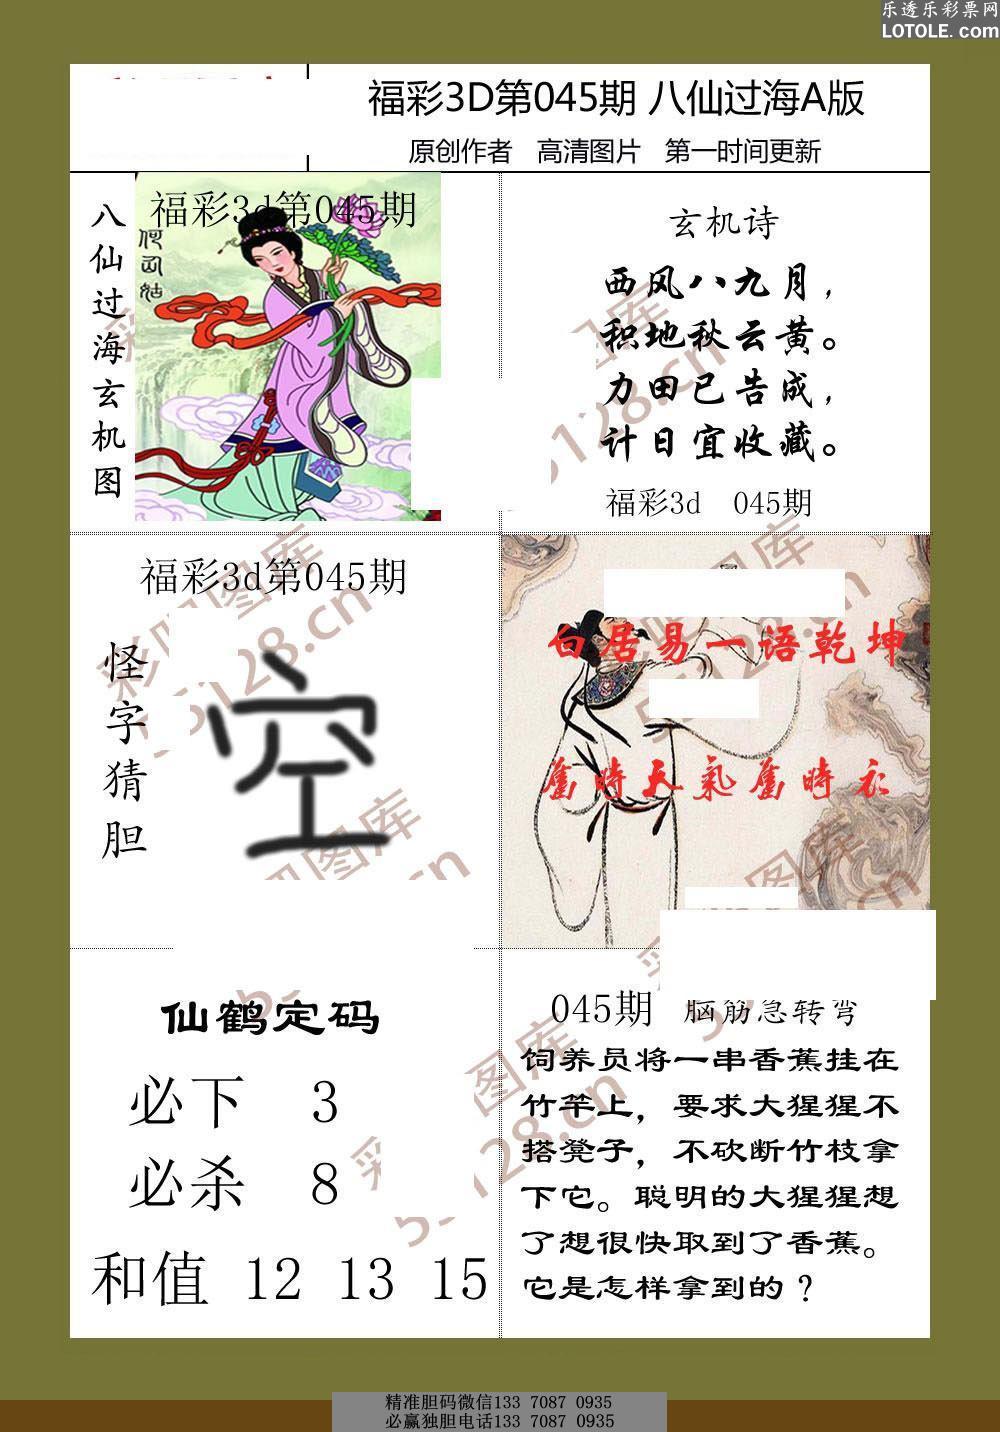 乐透乐彩票网
LOTOLE.com
福彩3D第045期 八仙过海A版
原创作者 高清图片 第一时间更新
八仙过海玄机图
福彩3d第045期
何仙姑
玄机诗
西风八九月，
积地秋云黄。
力田已告成，
计日宜收藏。
福彩3d 045期
福彩3d第045期
怪字猜胆
空
白居易一语乾坤
舊時天氣舊時衣
仙鹤定码
必下 3
必杀 8
和值 12 13 15
045期 脑筋急转弯
饲养员将一串香蕉挂在
竹竿上，要求大猩猩不
搭凳子，不砍断竹枝拿
下它。聪明的大猩猩想
了想很快取到了香蕉。
它是怎样拿到的？
精准胆码微信133 7087 0935
必赢独胆电话133 7087 0935